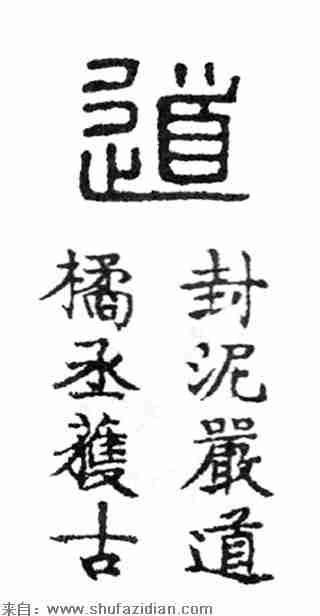 道
封泥嚴道
橘丞獲古
来自：www.shufazidian.com